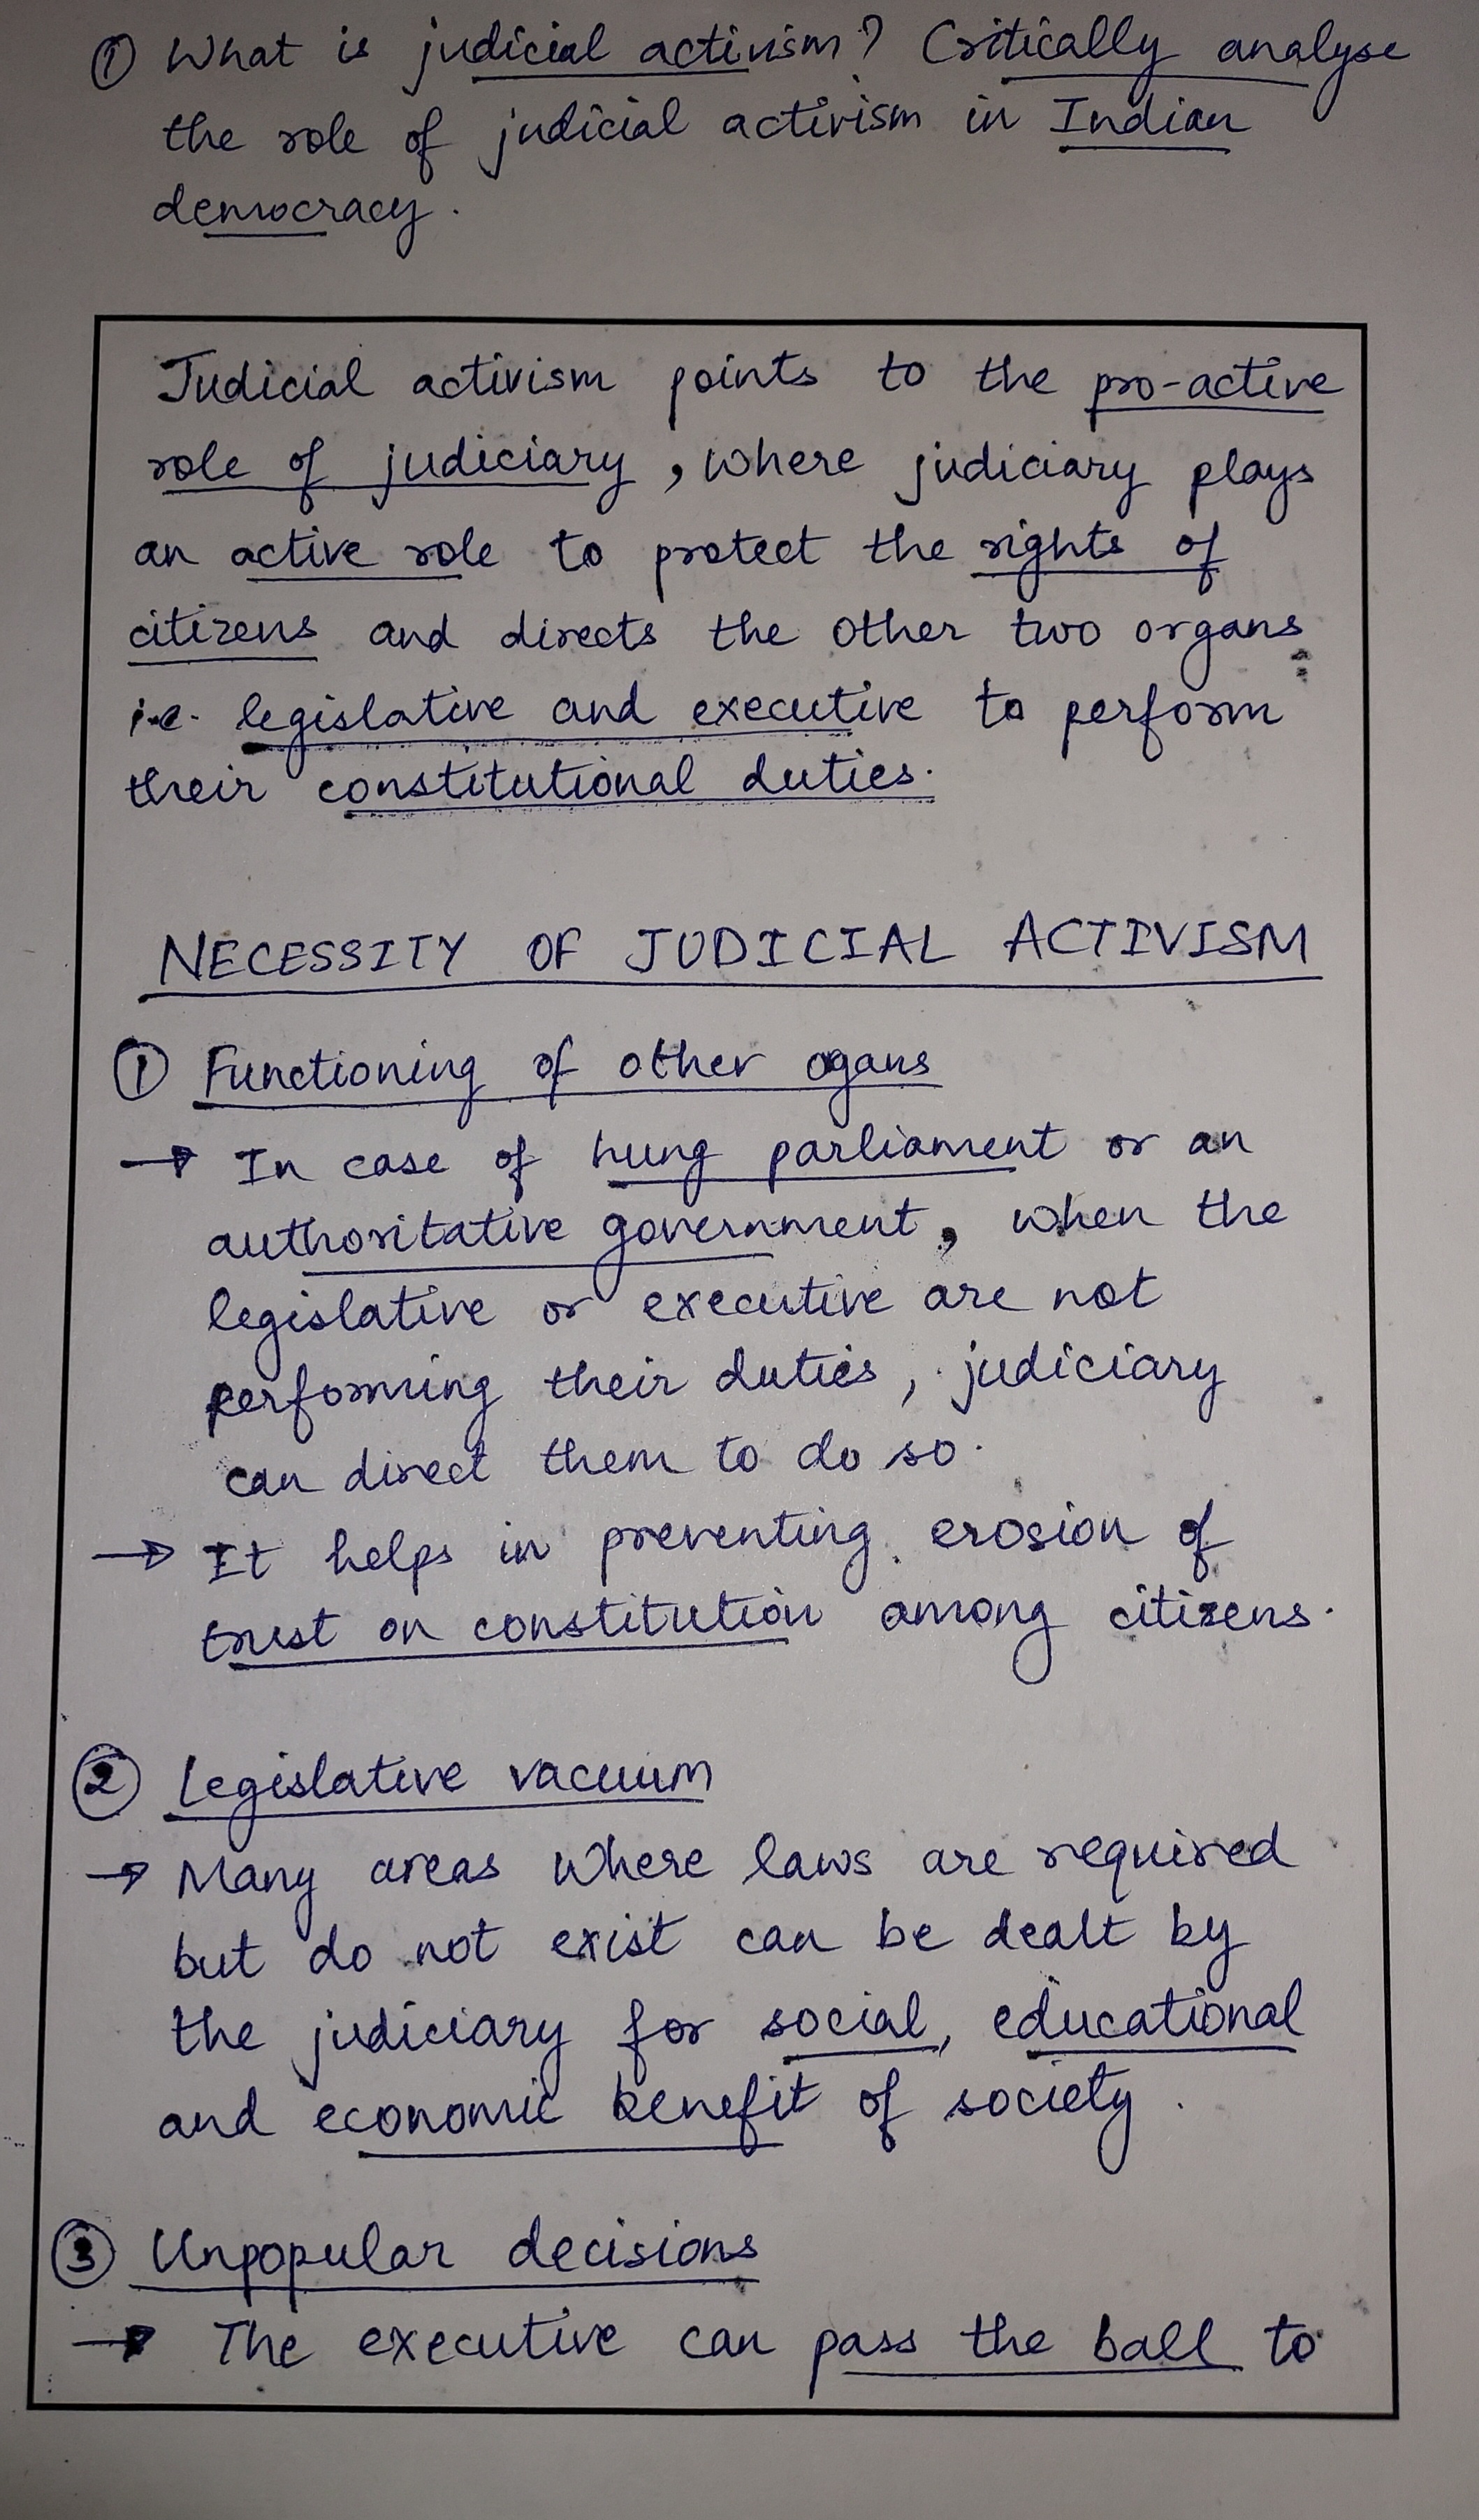 ① What is judicial activism? Critically analyse
the role of judicial activism in Indian
democracy.
Judicial activism points to the pro-active
role of judiciary, where judiciary plays
an active role to protect the rights of
citizens and directs the other two organs
i.e. legislative and executive to perform
their constitutional duties.
NECESSITY OF JUDICIAL ACTIVISM
① Functioning of other ogans
→ In case of hung parliament or an
authoritative government, when the
legislative or executive are not
performing their duties, judiciary
can direct them to do so.
→ It helps in preventing erosion of
trust on constitution among citizens.
② Legislative vacuum
→ Many areas where laws are required
but do not exist can be dealt by
the judiciary for social, educational
and economic benefit of society.
③ Unpopular decisions
→ The executive can pass the ball to